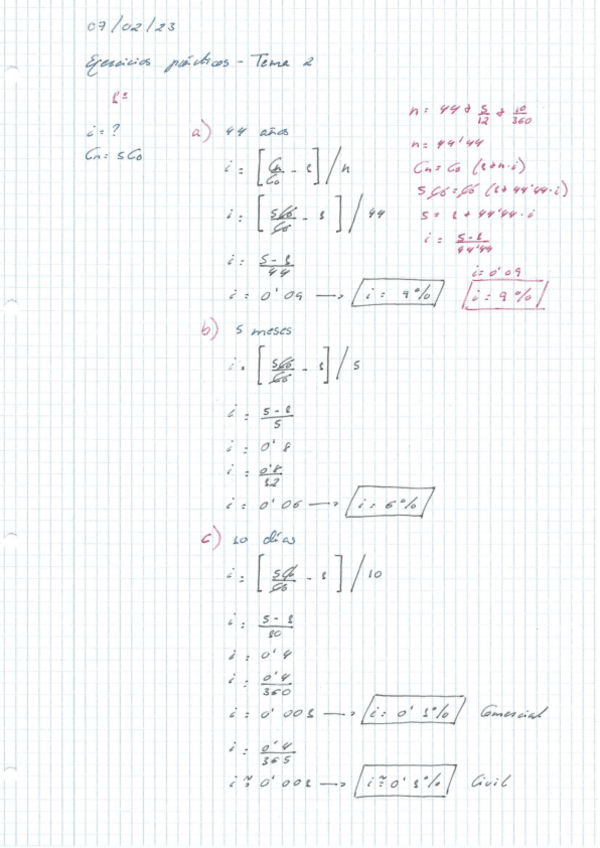 07/02/23
Ejercicios prácticos - Tema 2
1º
i = ?
Cn = 5C0
a) 44 años
i = [Cn/C0 - 1] / n
i = [5C0/C0 - 1] / 44
i = 5-1/44
i = 0'09 → i = 9%
n = 44 + 5/12 + 10/360
n = 44'44
Cn = C0 (1+n·i)
5C0 = C0 (1+44'44·i)
5 = 1 + 44'44·i
i = 5-1/44'44
i = 0'09
i = 9%
b) 5 meses
i = [5C0/C0 - 1] / 5
i = 5-1/5
i = 0'8
i = 0'8/12
i = 0'06 → i = 6%
c) 10 días
i = [5C0/C0 - 1] / 10
i = 5-1/10
i = 0'4
i = 0'4/360
i = 0'001 → i = 0'1% Comercial
i = 0'4/365
i ≈ 0'001 → i ≈ 0'1% Civil